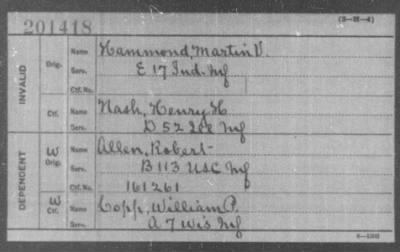 201418
(3—H—4)
INVALID
Orig.
Name Hammond, Martin V.
Serv. E 17 Ind. Inf
Ctf. No.
Ctf.
Name Nash, Henry H
Serv. D 52 Inf
DEPENDENT
W Orig.
Name Allen, Robert
Serv. B 113 USC Inf
Ctf. No. 161261
W Ctf.
Name Copp, William P.
Serv. A 7 Wis Inf